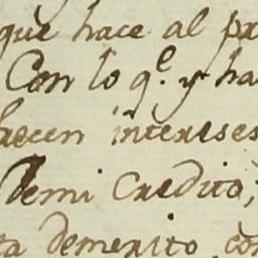 que hace al
Con lo q.e y ha
intereses
demi Credito,
demerito con